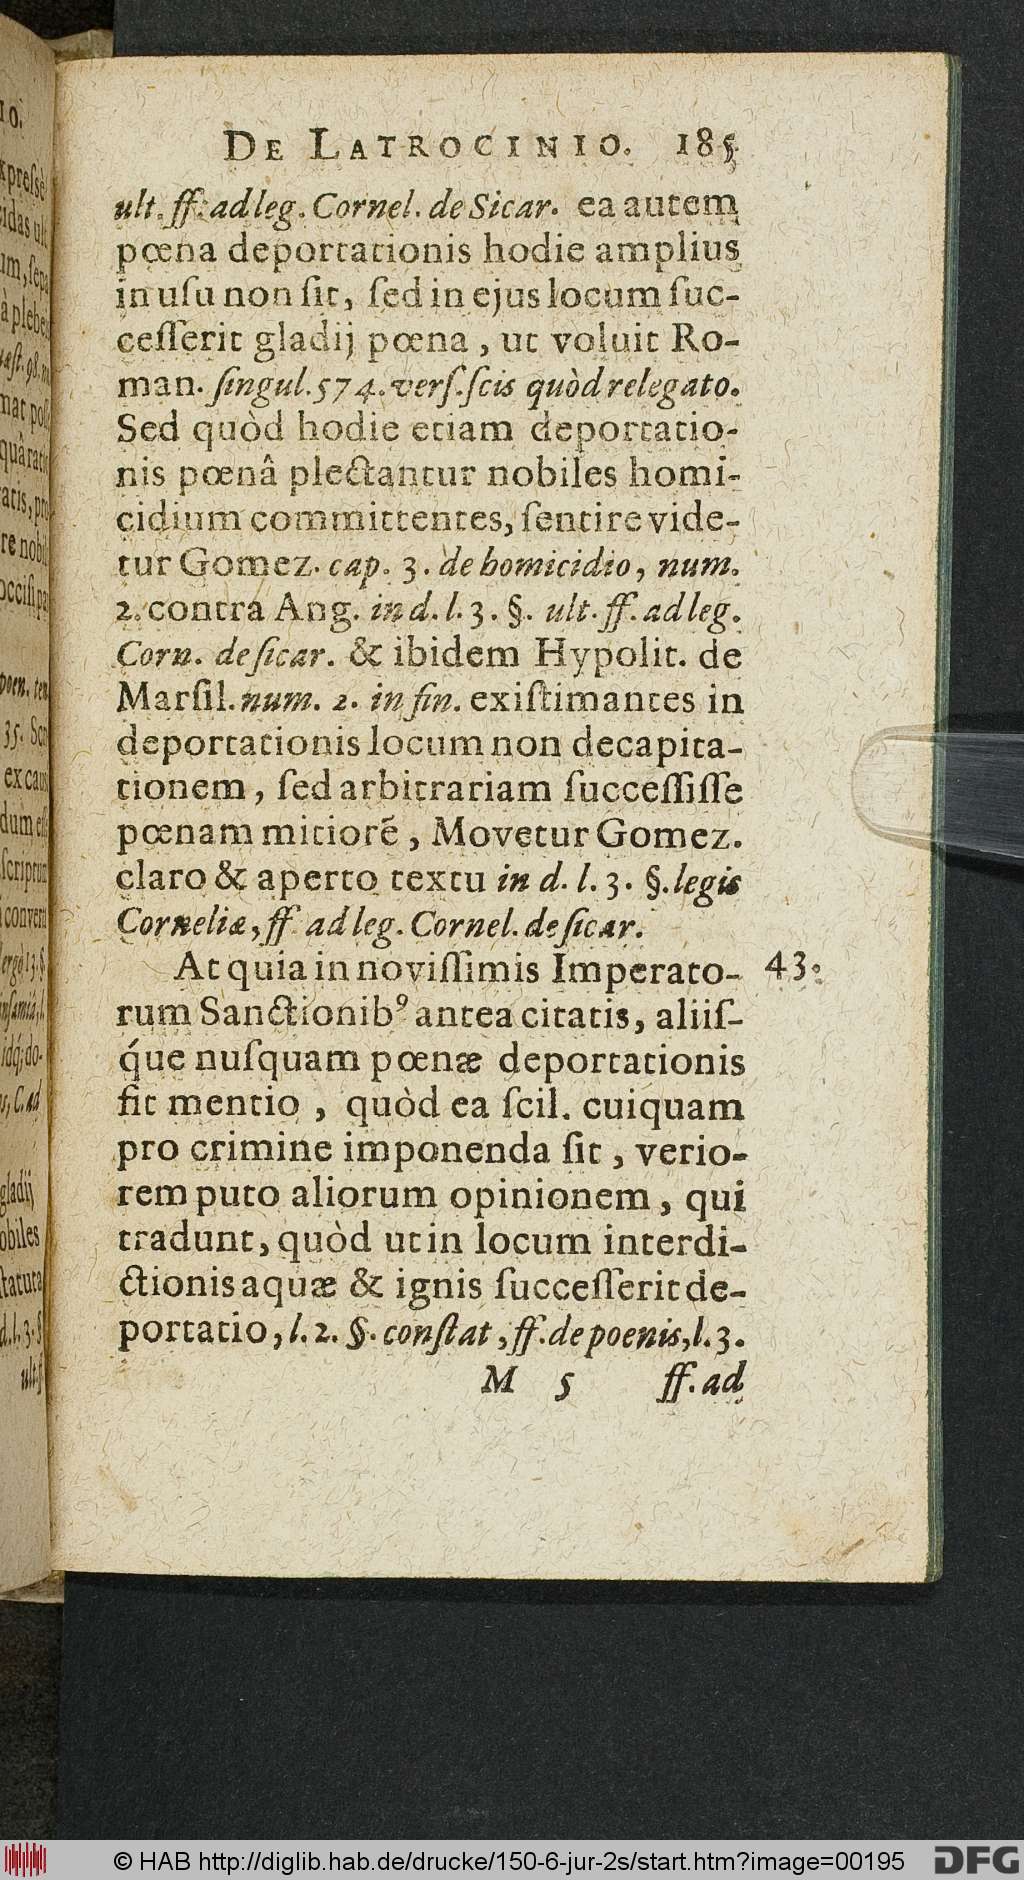 DE LATROCINIO. 185
ult. ff. ad leg. Cornel. de Sicar. ea autem
pœna deportationis hodie amplius
in uſu non ſit, ſed in ejus locum ſuc-
ceſſerit gladij pœna, ut voluit Ro-
man. ſingul. 574. verſ. ſcis quòd relegato.
Sed quòd hodie etiam deportatio-
nis pœnâ plectantur nobiles homi-
cidium committentes, ſentire vide-
tur Gomez. cap. 3. de homicidio, num.
2. contra Ang. in d. l. 3. §. ult. ff. ad leg.
Corn. de ſicar. & ibidem Hypolit. de
Marſil. num. 2. in fin. exiſtimantes in
deportationis locum non decapita-
tionem, ſed arbitrariam ſucceſſiſſe
pœnam mitiorẽ, Movetur Gomez.
claro & aperto textu in d. l. 3. §. legis
Corneliæ, ff ad leg. Cornel. de ſicar.
At quia in noviſſimis Imperato- 43.
rum Sanctionibꝰ antea citatis, aliiſ-
q́ue nuſquam pœnæ deportationis
fit mentio, quòd ea ſcil. cuiquam
pro crimine imponenda ſit, verio-
rem puto aliorum opinionem, qui
tradunt, quòd ut in locum interdi-
ctionis aquæ & ignis ſucceſſerit de-
portatio, l. 2. §. conſtat, ff. de poenis, l. 3.
M 5 ff. ad
© HAB http://diglib.hab.de/drucke/150-6-jur-2s/start.htm?image=00195
DFG